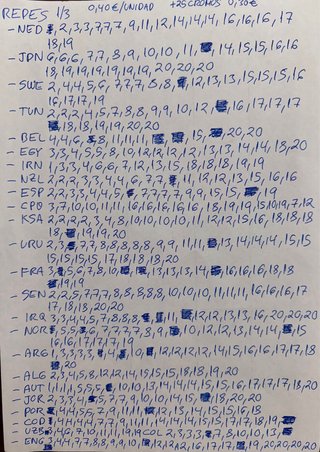 REDES 1/3 0,40€/UNIDAD +25 CROMOS 0,30€
- NED 2,3,3,7,7,7,9,11,12,14,14,14,16,16,16,17
18,19
- JPN 6,6,6,7,7,8,9,10,10,11,14,15,15,16,16
18,19,19,19,19,19,19,20,20,20
- SWE 2,4,4,5,6,7,7,7,8,8,12,13,13,15,15,15,16
16,17,17,19
- TUN 2,2,2,4,5,7,8,8,9,9,10,12,16,17,17,17
18,18,19,19,20,20
- BEL 4,4,6,8,11,11,11,15,20,20
- EGY 3,3,4,5,5,8,10,12,12,12,12,13,13,14,14,18,20
- IRN 1,3,3,4,6,6,7,12,13,15,18,18,18,19,19
- NZL 1,2,2,3,3,4,4,6,7,7,11,12,12,13,15,16,16
- ESP 2,2,3,3,4,4,5,7,7,7,7,9,9,15,15,19
- CPV 3,7,10,10,11,11,16,16,16,16,16,18,19,19,15,10,19,7,12
- KSA 2,2,2,2,3,4,8,10,10,10,10,11,12,12,15,16,18,18,18
18,19,19,20
- URU 2,3,7,7,8,8,8,8,9,9,11,11,13,14,14,14,15,15
15,15,15,15,17,18,18,18,20
- FRA 3,5,6,7,8,10,13,13,13,14,16,16,16,18,18
19,19
- SEN 2,2,5,7,7,7,8,8,8,8,8,10,10,10,11,11,11,16,16,16,17
17,18,18,20,20
- IRQ 3,3,4,4,5,7,8,8,11,12,12,13,16,20,20,20
- NOR 5,5,6,7,7,7,7,8,9,10,12,12,13,14,14,15
16,16,17,17,17,19
- ARG 1,3,3,3,3,10,12,12,12,12,14,15,16,16,17,17,18
20
- ALG 2,3,4,5,8,12,12,14,15,15,15,18,18,19,20
- AUT 1,1,1,5,5,5,10,10,13,14,14,14,15,15,16,17,17,17,18,20
- JOR 2,3,3,4,5,7,7,9,10,10,14,15,18,20,20
- POR 4,4,5,5,7,9,11,11,12,13,14,15,15,16,18
- COD 4,4,4,4,7,7,9,11,11,14,14,14,15,15,17,17,18,19
- UZB 3,4,6,7,10,11,11,19,19 COL 2,3,3,3,7,8,10,10,13
ENG 3,4,4,7,7,8,8,9,9,10,12,12,12,16,17,17,20,20,20,20